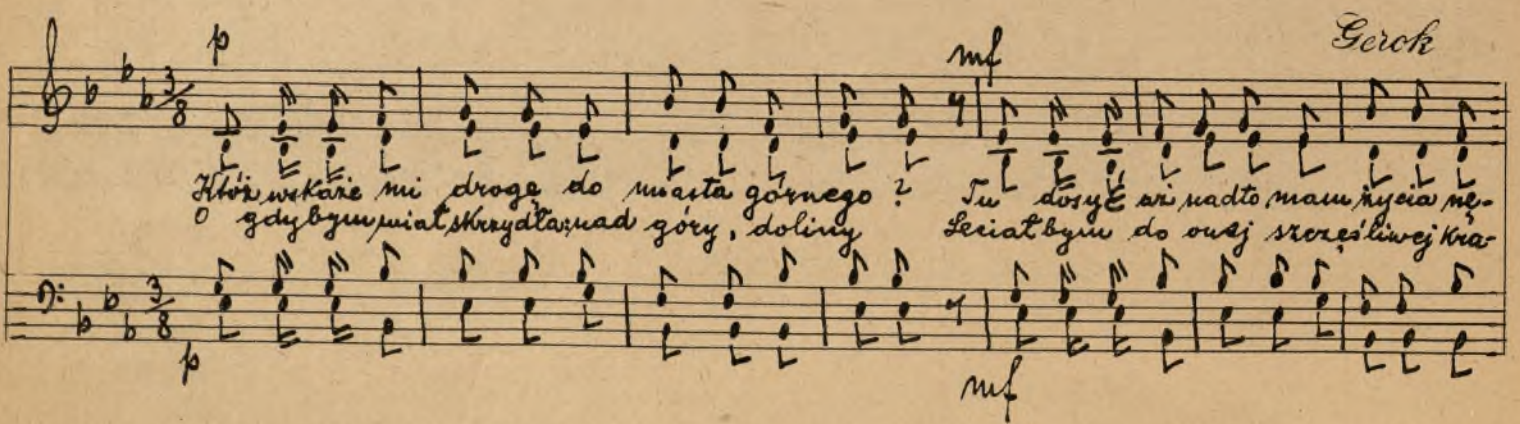 Gerok
p
mf
3/8
Któż wskaże mi drogę do miasta górnego? Tu dosyć aż nadto mam życia nę-
O gdybym miał skrzydła; nad góry, doliny Leciałbym do owej szczęśliwej kra-
3/8
p
mf